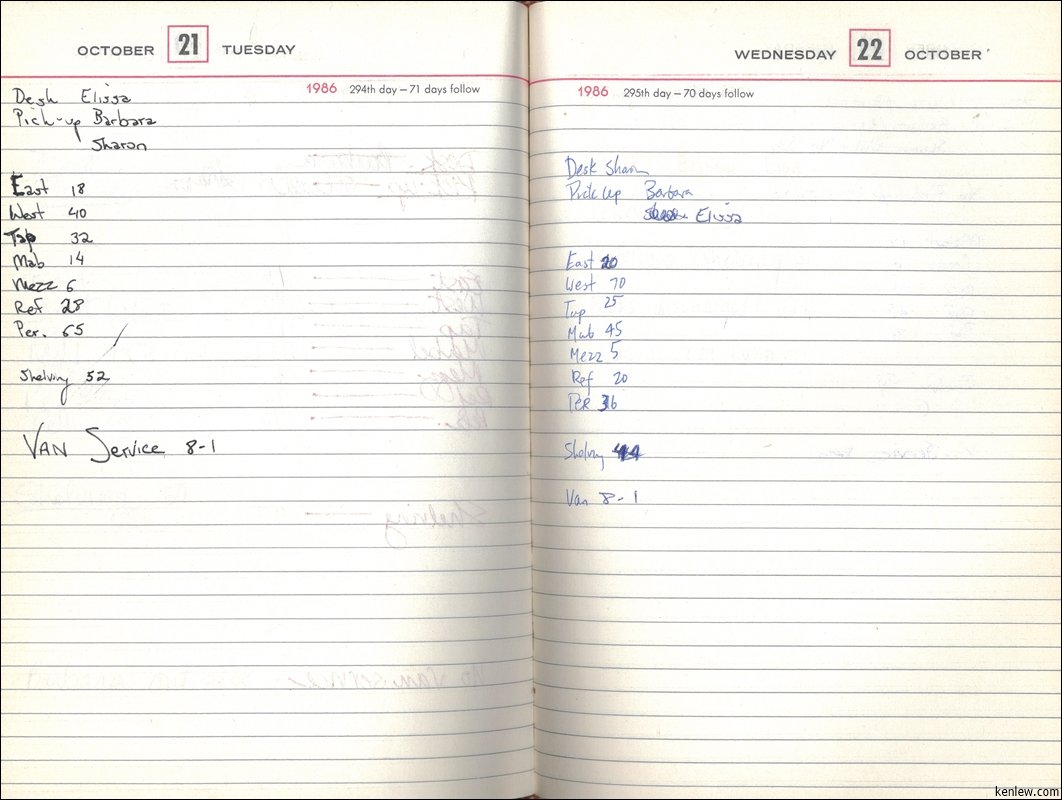 OCTOBER 21 TUESDAY
1986 294th day — 71 days follow
Desk Elissa
Pick-up Barbara
Sharon
East 18
West 40
Top 32
Mab 14
Mezz 6
Ref 28
Per. 65
Shelving 52
VAN Service 8-1
WEDNESDAY 22 OCTOBER
1986 295th day — 70 days follow
Desk Sharon
Pick Up Barbara
Elissa
East 20
West 70
Top 25
Mab 45
Mezz 5
Ref 20
PER 36
Shelving 44
Van 8-1
kenlew.com